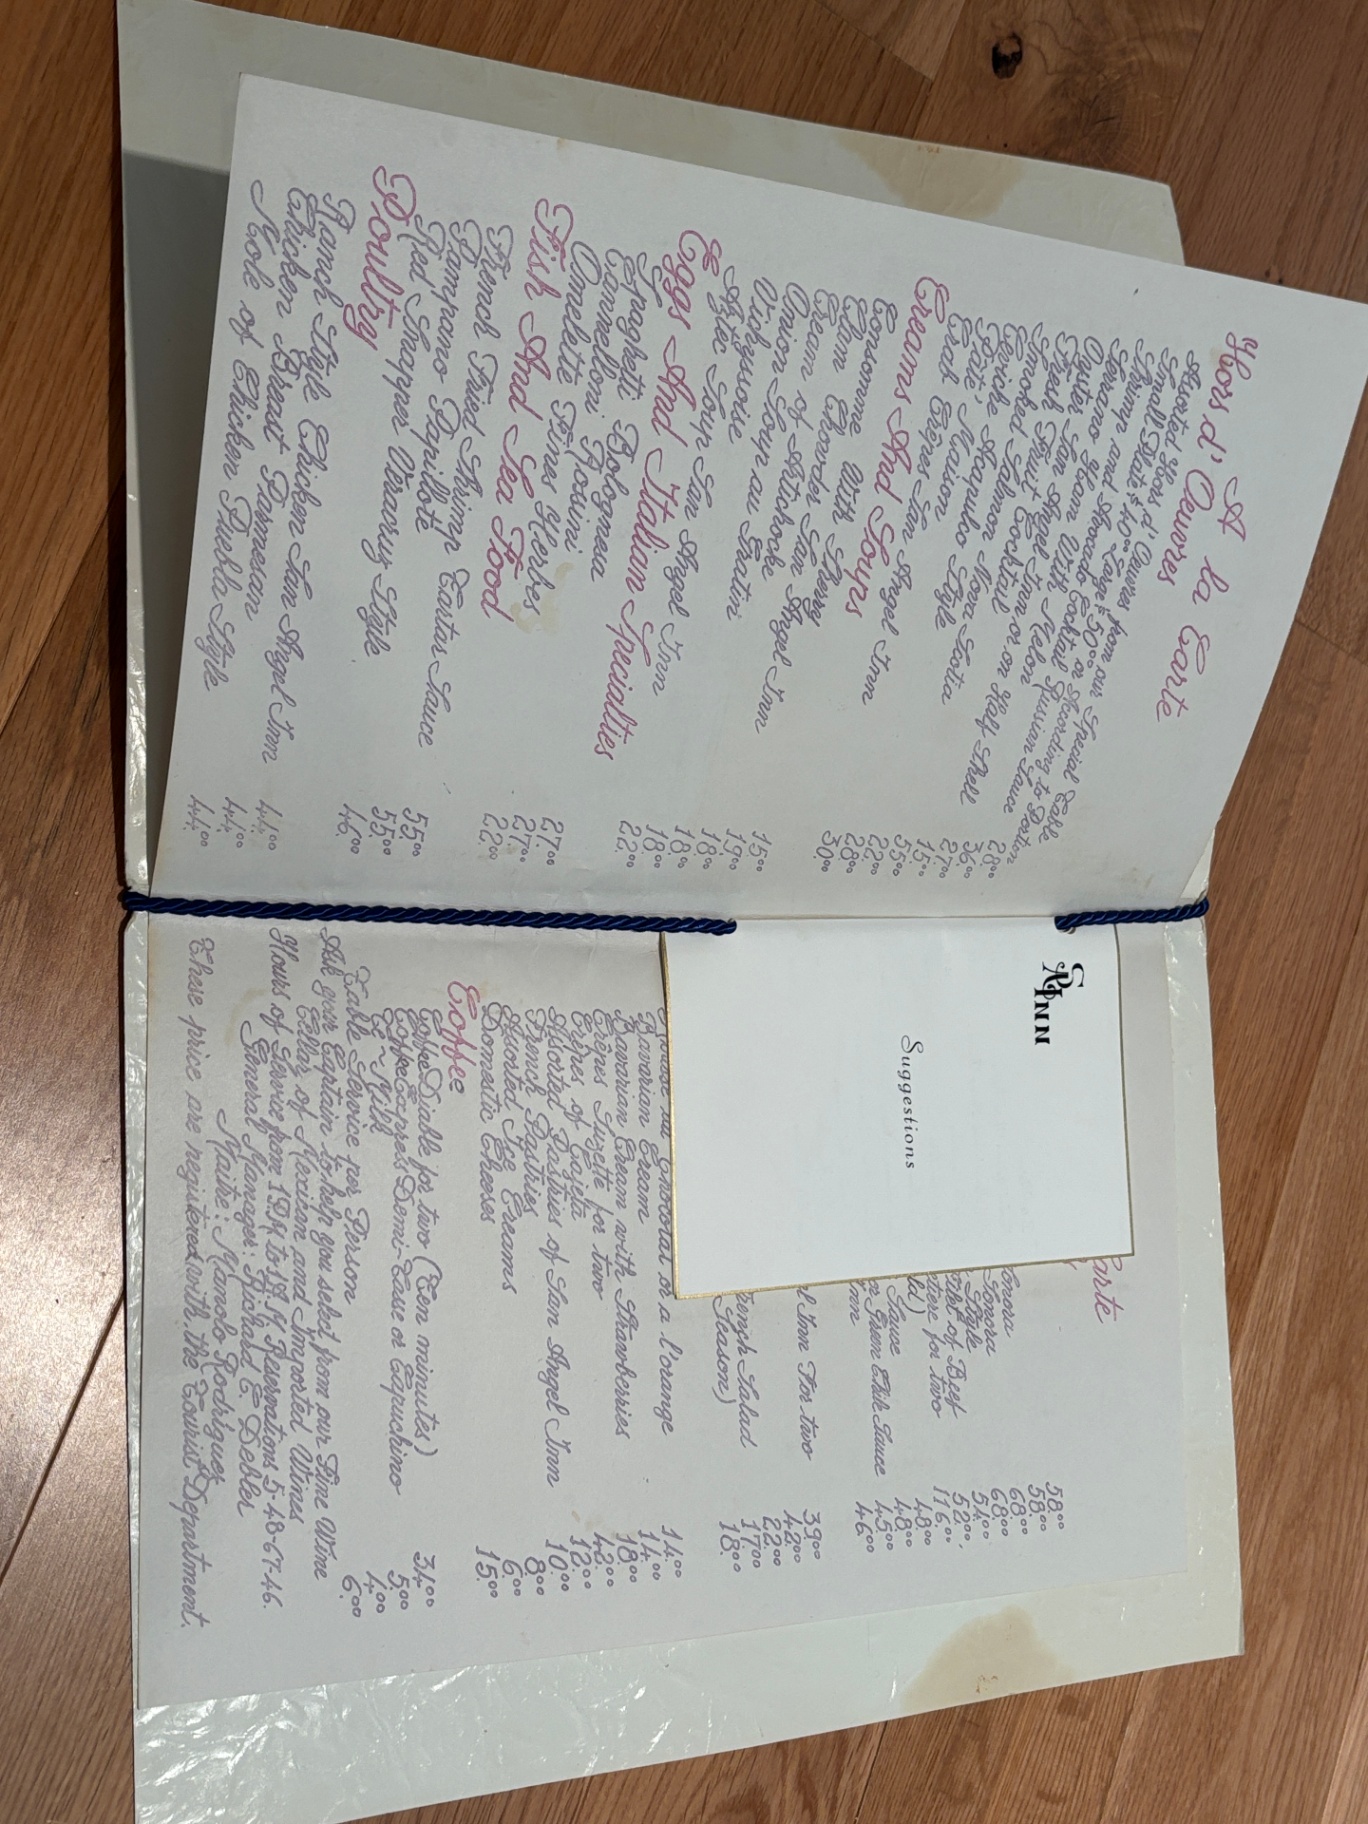 A la Carte
Hors d' Oeuvres
Assorted Hors d' Oeuvres from our Special Table
Small Plate $ 40.00 Large $ 50.00 or According to Portion
Shrimp and Avocado Cocktail Russian Sauce 28.00
Serrano Ham With Melon 36.00
Oyster San Angel Inn or on Half Shell 27.00
Fresh Fruit Cocktail 15.00
Smoked Salmon Nova Scotia 55.00
Ceviche Acapulco Style 22.00
Paté, Maison 28.00
Crab Crêpes San Angel Inn 30.00
Creams And Soups
Consomme With Sherry 15.00
Clam Chowder San Angel Inn 19.00
Cream of Artichoke 18.00
Onion Soup au Gratin 18.00
Vichyssoise 18.00
Aztec Soup San Angel Inn 22.00
Eggs And Italian Specialties
Spaghetti Bolognesa 27.00
Cannelloni Rossini 27.00
Omelette Fines Herbes 22.00
Fish And Sea Food
French Fried Shrimp Tartar Sauce 55.00
Pampano Papillote 55.00
Red Snapper Veracruz Style 46.00
Poultry
Ranch Style Chicken San Angel Inn 44.00
Chicken Breast Parmesan 44.00
Mole of Chicken Puebla Style 44.00
SAINN
Suggestions
arte
onora 58.00
Sonora 58.00
Style 68.00
of Beef 68.00
for two 54.00
ld) 52.00
Sauce 116.00
Green Sauce 48.00
48.00
45.00
46.00
l Inn For two 39.00
42.00
22.00
French Salad 17.00
Season) 18.00
au Chocolat or a l'orange 14.00
Bavarian Cream 14.00
Bavarian Cream with Strawberries 18.00
Crêpes Suzette for two 42.00
Crêpes of Cajeta 12.00
Assorted Pastries of San Angel Inn 10.00
French Pastries 8.00
Assorted Ice Creams 6.00
Domestic Cheeses 15.00
Coffee
Coffee Diable for two (Ten minutes) 34.00
Coffee Express Demi-Tasse or Capuchino 5.00
Milk 4.00
Table Service per Person 6.00
Ask your Captain to help you select from our Fine Wine
Cellar of Mexican and Imported Wines
Hours of Service from 1PM to Reservations 5-48-67-46.
General Manager: Richard E. Debler
Maitre: Manolo Rodríguez
These price are registered with the Tourist Department.